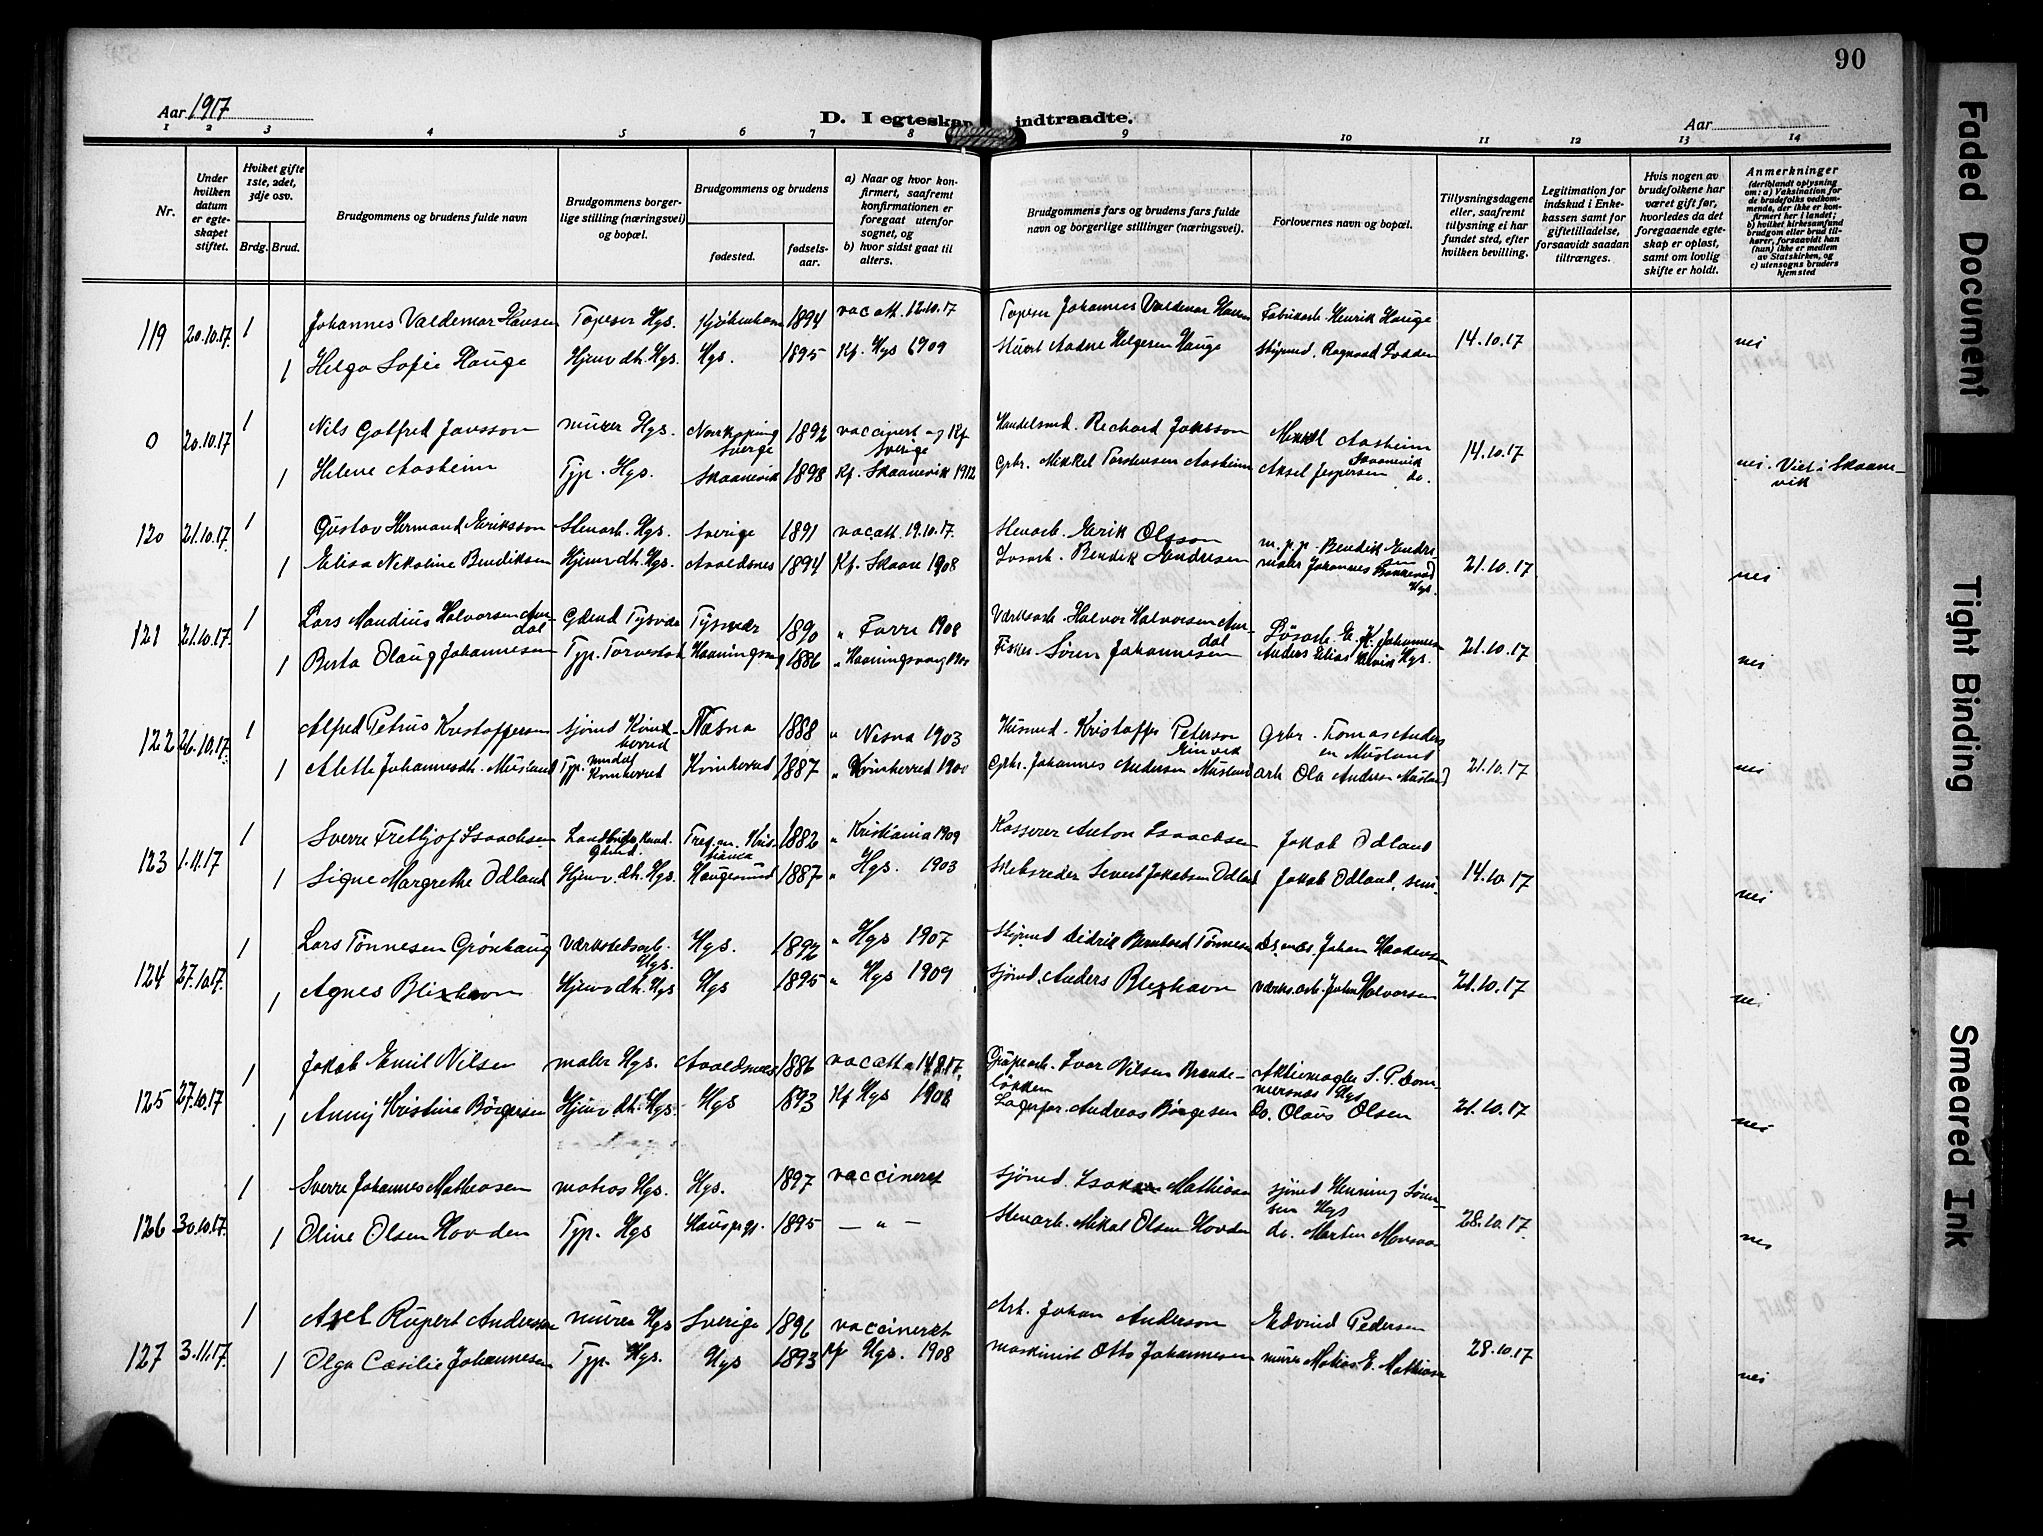 90
Aar 1917
D. I egteskap indtraadte.
Aar
1 2 3 4 5 6 7 8 9 10 11 12 13 14
Nr.
Under hvilken datum er egteskapet stiftet.
Hviket gifte 1ste, 2det, 3dje osv.
Brdg. Brud.
Brudgommens og brudens fulde navn
Brudgommens borgerlige stilling (næringsvei) og bopæl.
Brudgommens og brudens
fødested.
fødselsaar.
a) Naar og hvor konfirmert, saafremt konfirmationen er foregaat utenfor sognet, og
b) hvor sidst gaat til alters.
Brudgommens fars og brudens fars fulde navn og borgerlige stillinger (næringsvei).
Forlovernes navn og bopæl.
Tillysningsdagene eller, saafremt tillysning ei har fundet sted, efter hvilken bevilling.
Legitimation for indskud i Enkekassen samt for giftetilladelse, forsaavidt saadan tiltrænges.
Hvis nogen av brudefolkene har været gift før, hvorledes da det foregaaende egteskap er opløst, samt om lovlig skifte er holdt.
Anmerkninger (deriblandt oplysning om: a) Vaksination for de brudefolks vedkommende, der ikke er konfirmert her i landet; b) hvilket kirkesamfund brudgom eller brud tilhører, forsaavidt han (hun) ikke er medlem av Statskirken, og c) utensogns bruders hjemsted
119 20.10.17. 1 Johannes Valdemar Hansen Tapeser Hgs. Kjøbenhavn 1894 vac att. 12.10.17 Tapeser Johannes Valdemar Hansen Fabrikarb. Henrik Hauge 14.10.17 nei
1 Helga Sofie Hauge Hjemv dh. Hgs. Hgs. 1895 Kf. Hgs 1909 Aadne Helgesen Hauge Styrmd. Ragnvald Lodden
0 20.10.17 1 Nils Gotfred Jansson murer Hgs. Norrkøping Sverge 1892 vaccinert og Kf Sverige Handelsmd. Richard Jakobson Mikkel Aasheim Skaanevik 14.10.17 nei. Viet i Skaanevik
1 Helene Aasheim Typ. Hgs. Skaanevik 1898 Kf. Skaanevik 1912 Grbr. Mikkel Torstensen Aasheim Aksel Jespersen do.
120 21.10.17. 1 Gustav Hermand Eriksson Stenarb. Hgs. Sverige 1891 vac att. 19.10.17. Stenarb. Erik Olsson m.p.p. Bendik Endresen
1 Elisa Nikoline Bendiksen Hjemv dh. Hgs. Avaldsnes 1894 Kf. Skaare 1908 Løsarb. Bendik Endresen maler Johannes Hgs. 21.10.17 nei
121 21.10.17. 1 Lars Mandius Halvorsen Aurdal Gdmd Tysvær Tysvær 1890 " Førre 1908 Værksarb. Halvor Halvorsen Aurdal Løsarb. E. K. Johannesen 21.10.17 nei
1 Berta Olaug Johannesen Typ. Torvestad Haaningsvaag 1886 " Haaningsvaag Fisker. Søren Johannesen Anders Elias Hgs.
122 26.10.17. 1 Alfred Petrus Kristoffersen sjømd Kvindherred Næsna 1888 " Nesna 1903 Husmd. Kristoffer Peterson Grbr. Tomas Andersen Musland 21.10.17 nei
1 Alette Johannesdt. Musland Typ. Kvinherred Kvinherred 1887 " Kvinherred 1901 Grbr. Johannes Andersen Musland arb. Ola Andersen Musland
123 1.11.17 1 Sverre Fritjof Isaachsen Kristiania 1882 " Kristiania 1909 Kasserer Anton Isaachsen Jakob Odland 14.10.17 nei
1 Signe Margrethe Odland Hjemv. dh. Hgs. Haugesund 1887 " Hgs. 1903 Skibsreder Sivert Jakobsen Odland Jakob Odland, sen.
124 27.10.17. 1 Lars Tønnesen Grønhaug Værkstedsarb. Hgs. Hgs. 1892 " Hgs 1907 Styrmd Didrik Bernhard Tønnesen Johan 21.10.17 nei
1 Agnes Blixhavn Hjemv dh. Hgs Hgs 1895 " Hgs 1909 sjømd. Anders Blixhavn værks.arb. John Halvorsen
125 27.10.17 1 Jakob Emil Nilsen maler Hgs. Avaldsnes 1886 vac att Ivar Nilsen Brandeløkken Aktiemægler S. P. Hgs 21.10.17 nei
1 Anny Kristina Børgesen Hjemv dh. Hgs. Hgs 1893 Kf Hgs 1908 Lagerfor. Andreas Børgesen do. Olaus Olsen
126 30.10.17. 1 Sverre Johannes Mathiasen matros Hgs. Hgs. 1897 vaccineret sjømd. Isak Mathiasen sjømd Henning Sørensen Hgs 28.10.17. nei
1 Oline Olsen Hovden Typ. Hgs 1895 — " — Stenarb. Mikal Olsen Hovden do. Martin
127 3.11.17. 1 Axel Rupert Anderson murer Hgs Sverige 1896 vaccineret Arb. Johan Anderson Edvind Pedersen
1 Olga Cæsilie Johannesen Typ. Hgs. Hgs 1893 Kf Hgs. 1908 maskinist Otto Johannesen murer Matias E. Mathiasen 28.10.17 nei
Faded Document
Tight Binding
Smeared Ink